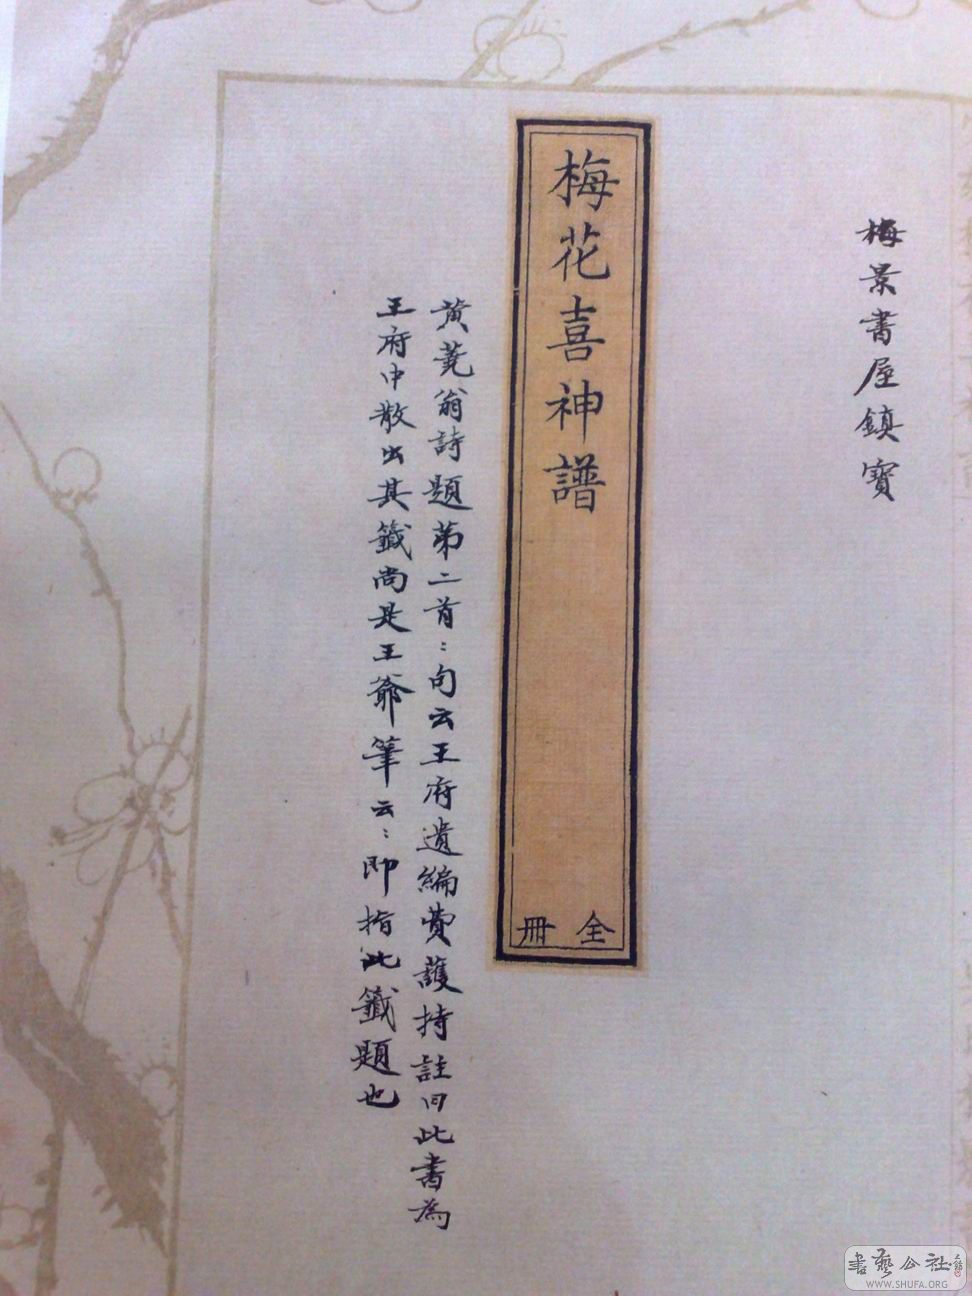 梅景書屋鎮寶
梅花喜神譜
全冊
黃蕘翁詩題第二首：句云王府遺編費護持註曰此書為
王府中散出其籤尚是王爺筆云：即指此籤題也
書藝公社
WWW.SHUFA.ORG